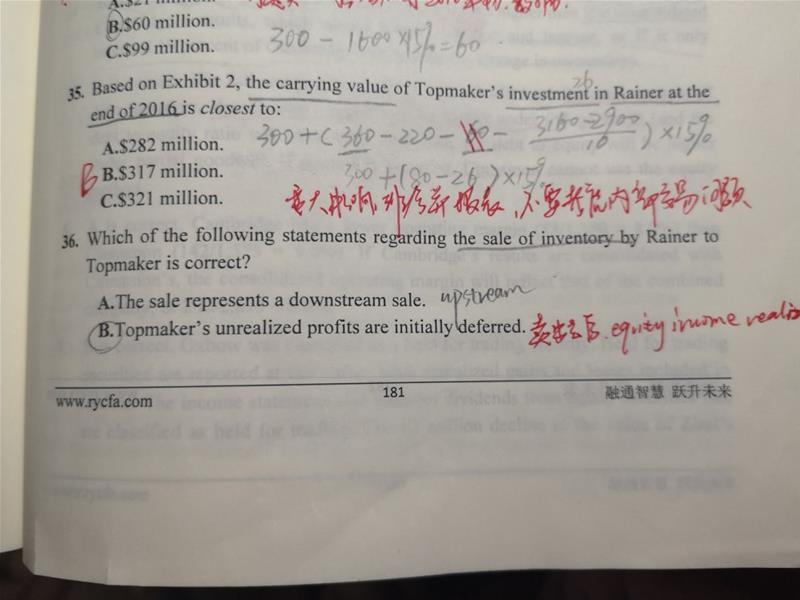 B.$60 million.
300 - 1600×15%=60
C.$99 million.
35. Based on Exhibit 2, the carrying value of Topmaker's investment in Rainer at the
26
end of 2016 is closest to:
300+(360-220- - 3160-2900/10)×15%
A.$282 million.
B B.$317 million.
300+(80-26)×15%
C.$321 million.
重大影响, 不要考虑内部交易问题
36. Which of the following statements regarding the sale of inventory by Rainer to
Topmaker is correct?
A.The sale represents a downstream sale. upstream
B.Topmaker's unrealized profits are initially deferred. equity income
www.rycfa.com
181
融通智慧 跃升未来